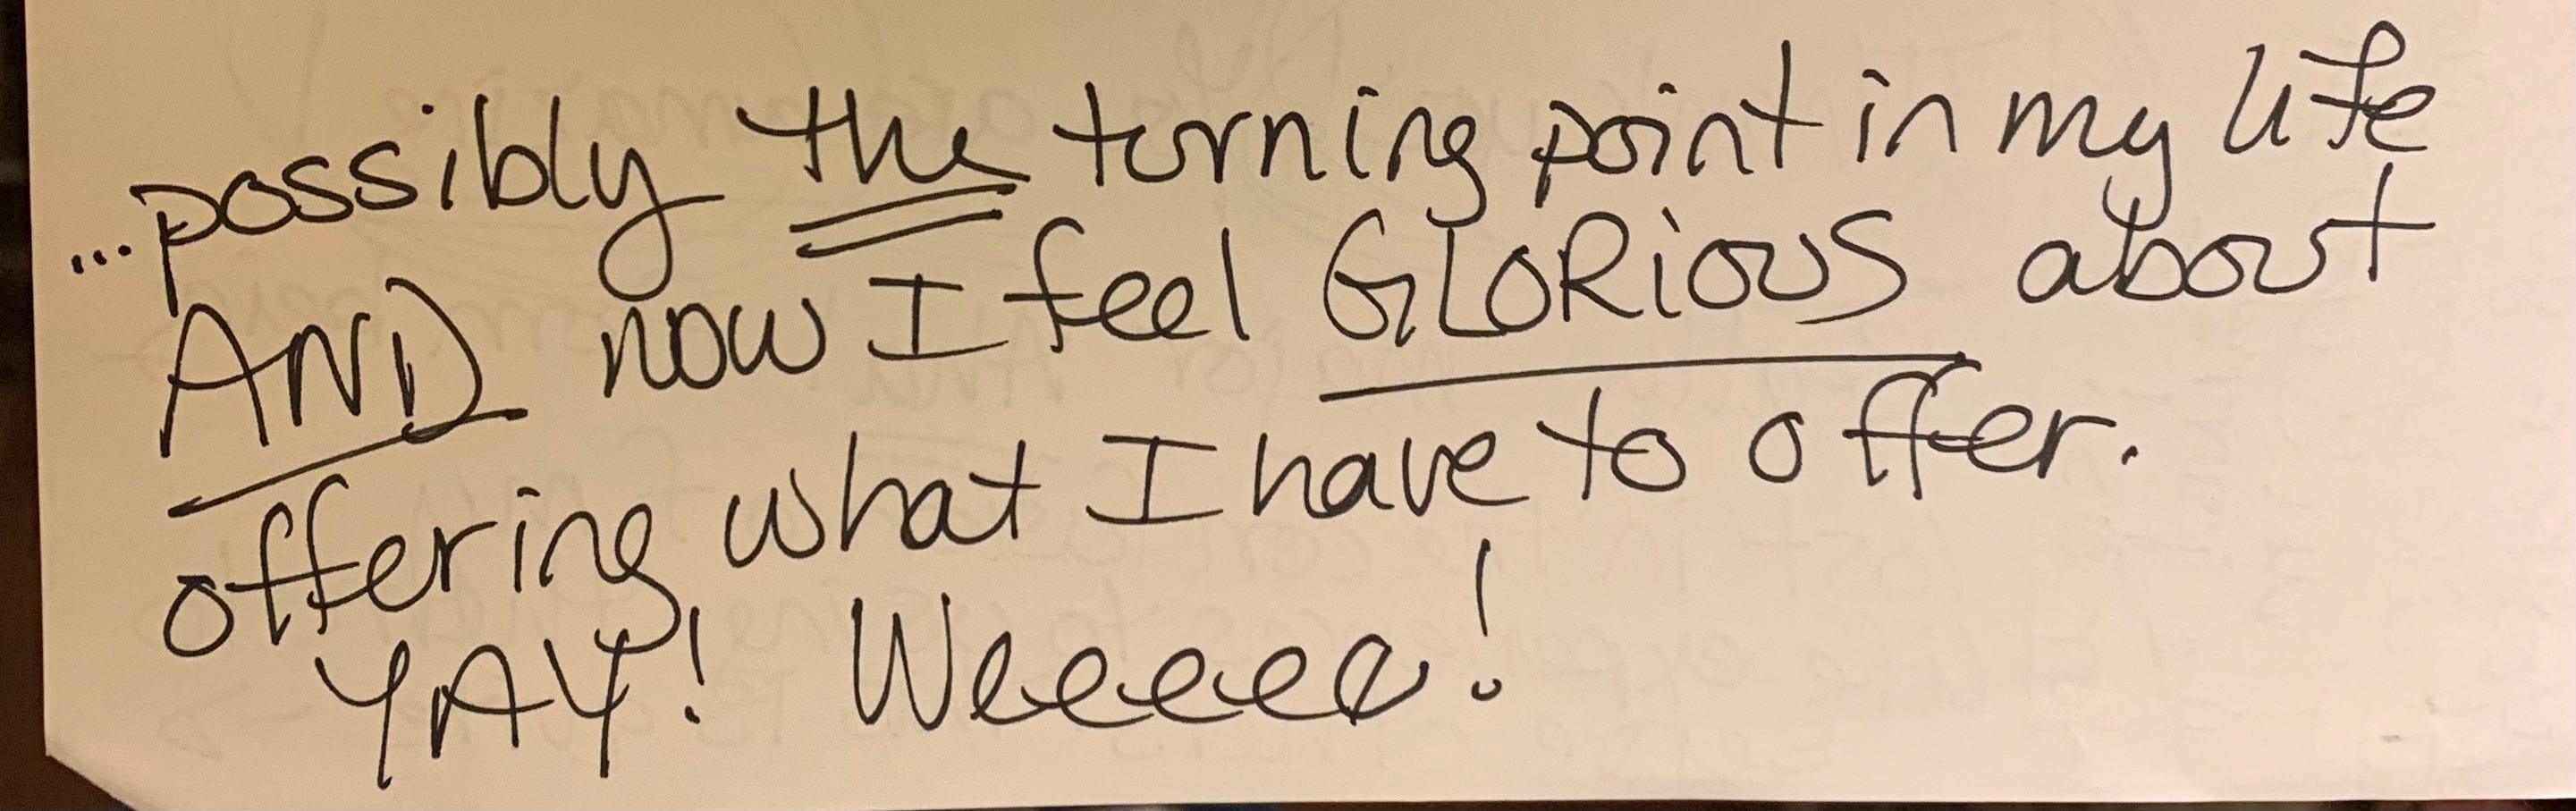 ...possibly the turning point in my life
AND now I feel GLORiOUS about
offering what I have to offer.
YAY! Weeeee!